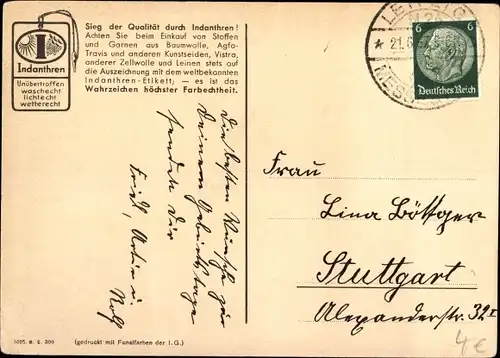 Indanthren
Unübertroffen
waschecht
lichtecht
wetterecht
Sieg der Qualität durch Indanthren!
Achten Sie beim Einkauf von Stoffen
und Garnen aus Baumwolle, Agfa-
Travis und anderen Kunstseiden, Vistra,
anderer Zellwolle und Leinen stets auf
die Auszeichnung mit dem weltbekannten
Indanthren-Etikett; — es ist das
Wahrzeichen höchster Farbechtheit.
LEIPZIG
* 21.6.
MESSE
6 6
Deutsches Reich
Die besten Wünsche zu
Deinem Geburtstage
sendet Dir
Rolf
Frau
Lina Böttger
Stuttgart
Alexanderstr. 32 I
(gedruckt mit Fanalfarben der I.G.)
4 €